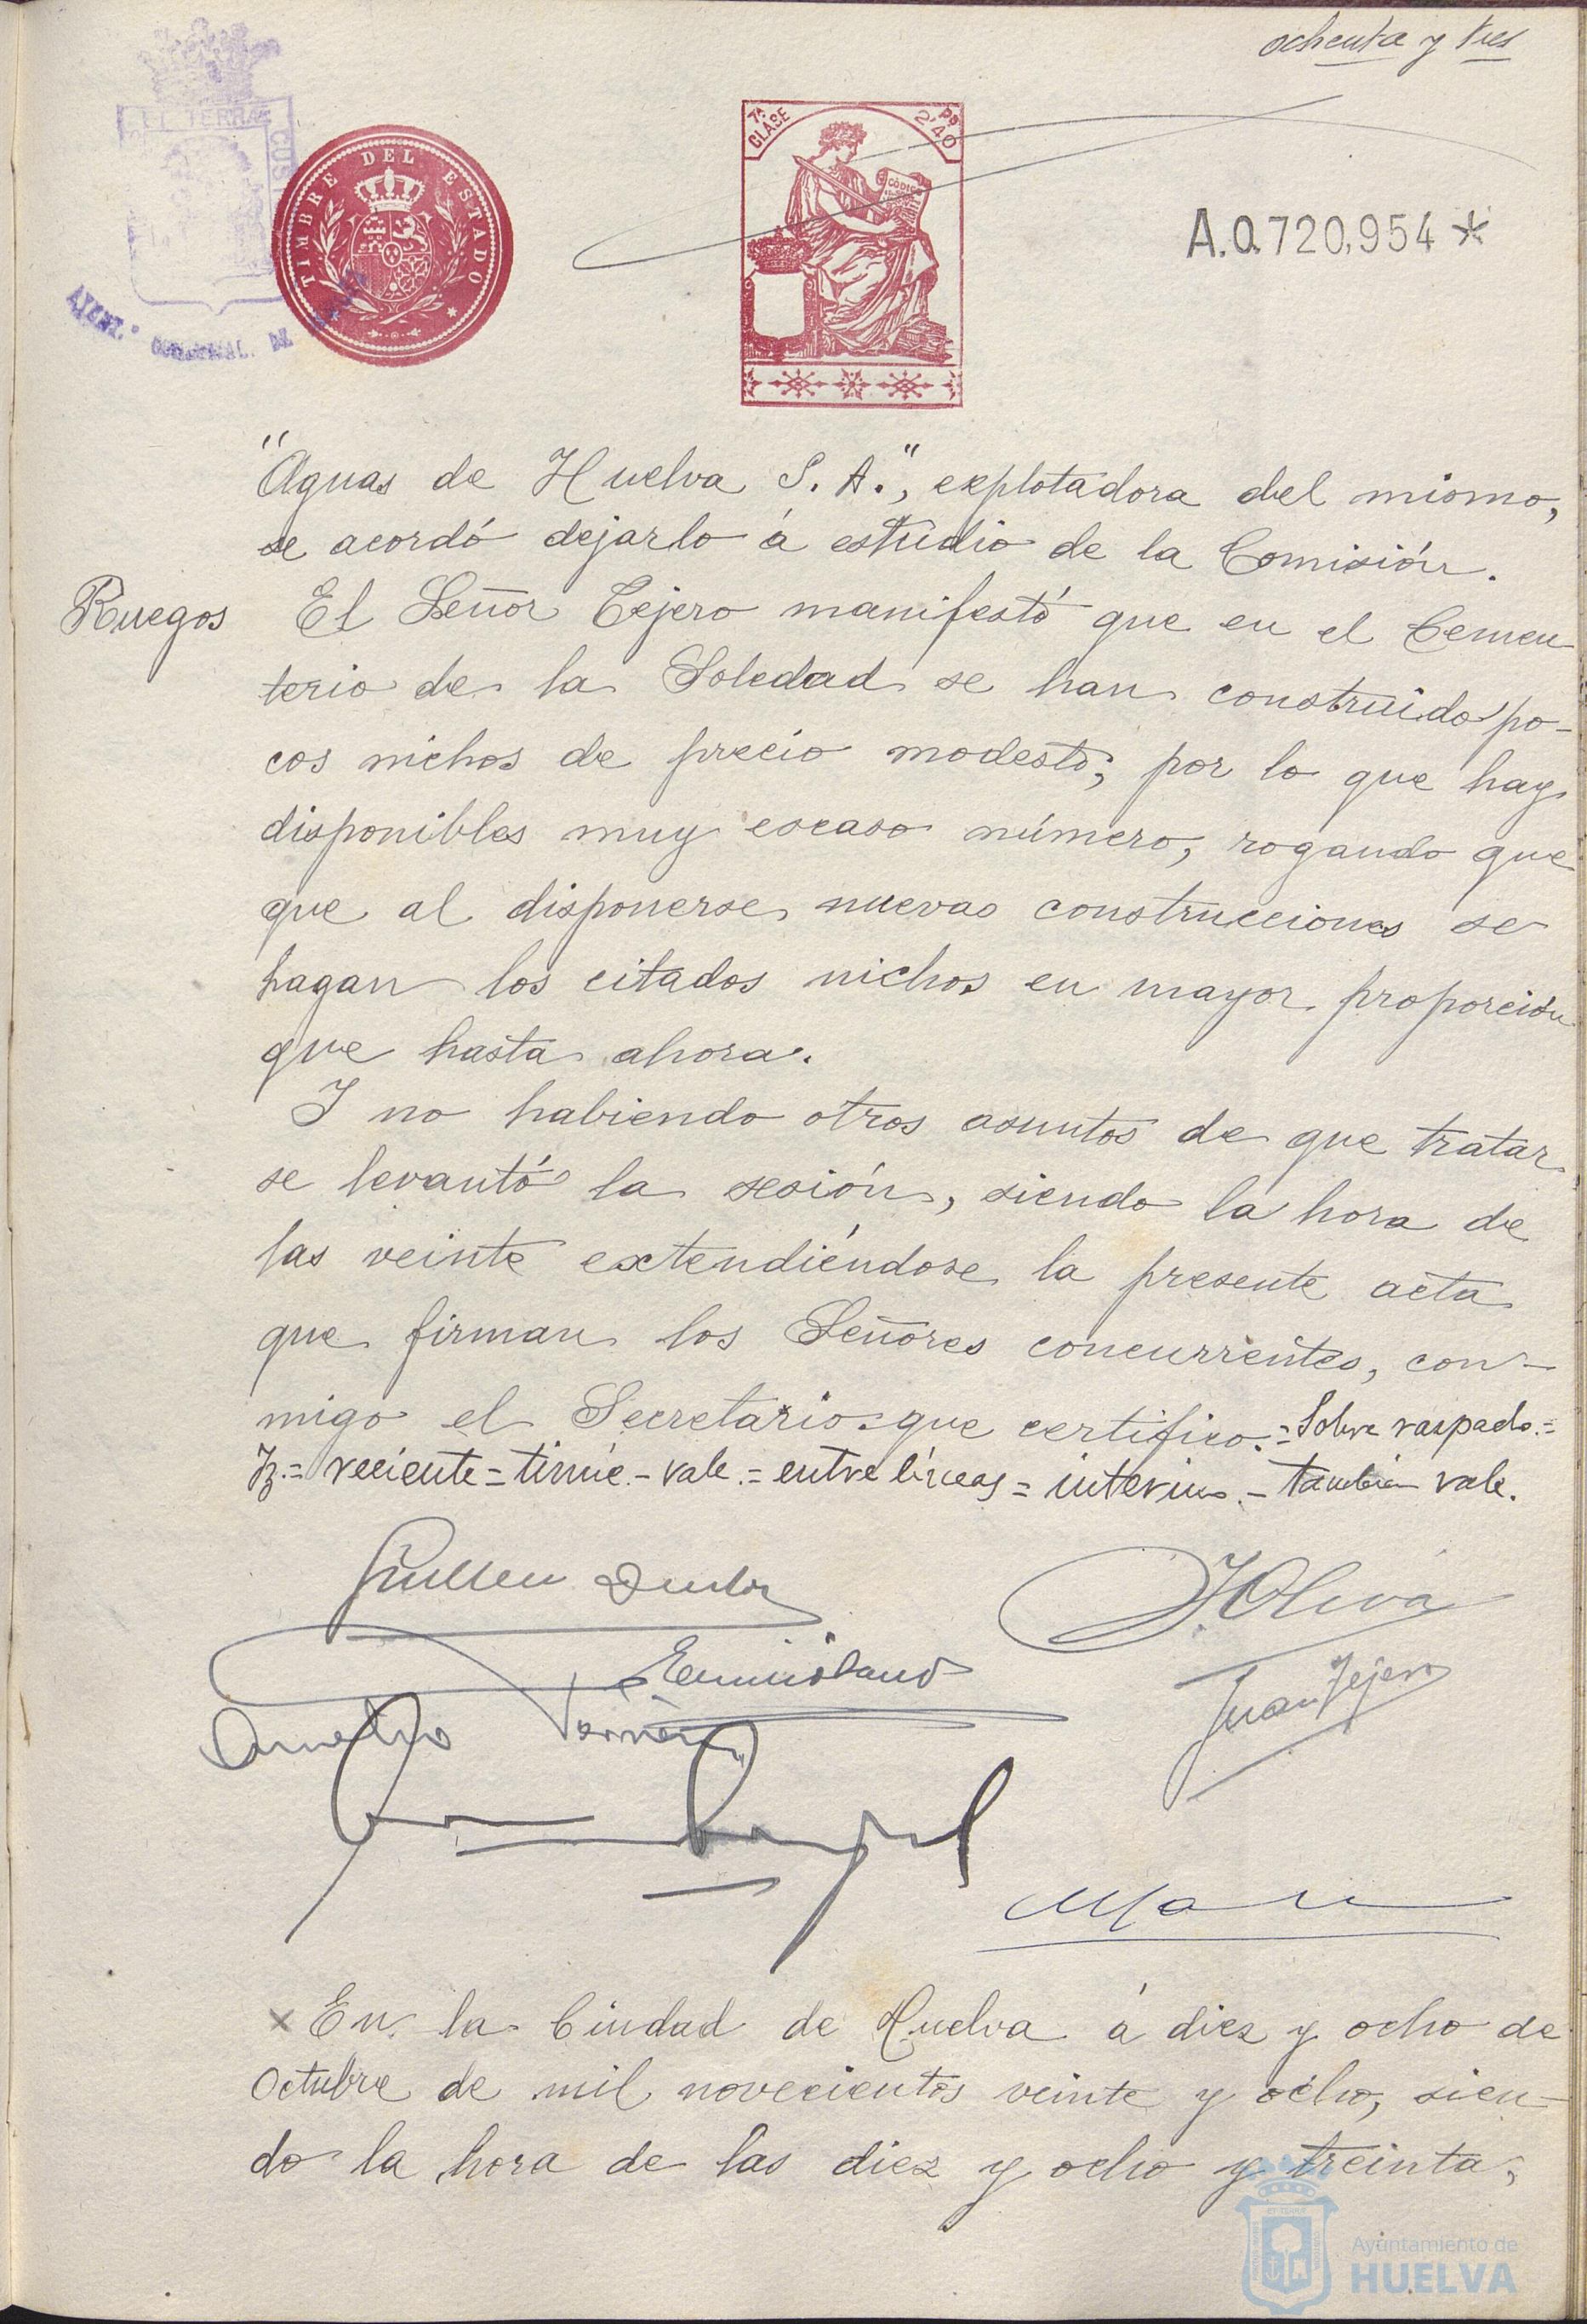 ochenta y tres
7ª CLASE
2'40 Ps
TIMBRE DEL ESTADO
CÓDIGO
A.0.720,954*
"Aguas de Huelva S. A.", explotadora del mismo,
se acordó dejarlo á estudio de la Comisión.
Ruegos
El Señor Tejero manifestó que en el Cemen-
terio de la Soledad se han construido po-
cos nichos de precio modesto; por lo que hay
disponibles muy escaso número, rogando que
que al disponerse nuevas construcciones se
hagan los citados nichos en mayor proporción
que hasta ahora.
Y no habiendo otros asuntos de que tratar
se levantó la sesión, siendo la hora de
las veinte extendiéndose la presente acta
que firman los Señores concurrentes, con-
migo el Secretario que certifico.=Sobre raspado.=
reciente = - vale.= entre líneas = interino.- también vale.
J Oliva
Juan Tejero
En la Ciudad de Huelva á diez y ocho de
Octubre de mil novecientos veinte y ocho, sien-
do la hora de las diez y ocho y treinta,
Ayuntamiento de
HUELVA